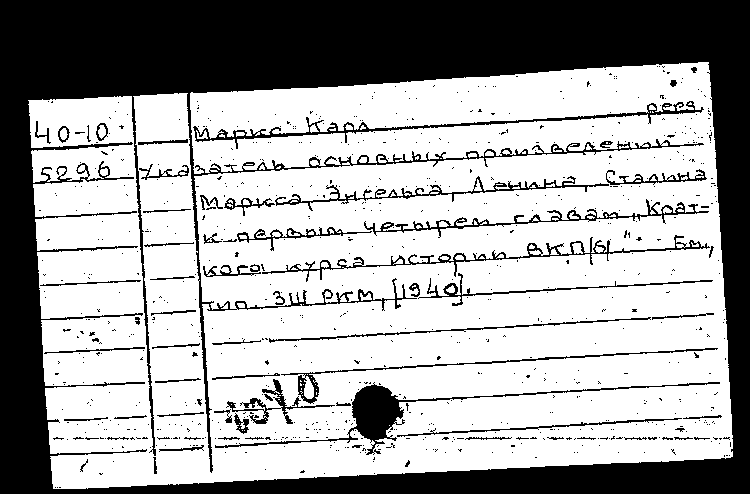 40-10 Маркс Карл рега
5296 Указатель основных произведений
Маркса, Энгельса, Ленина, Сталина
к первым четырем главам „Крат=
кого курса истории ВКП/б/". Б.м.,
тип. ЗШ РКМ, [1940].